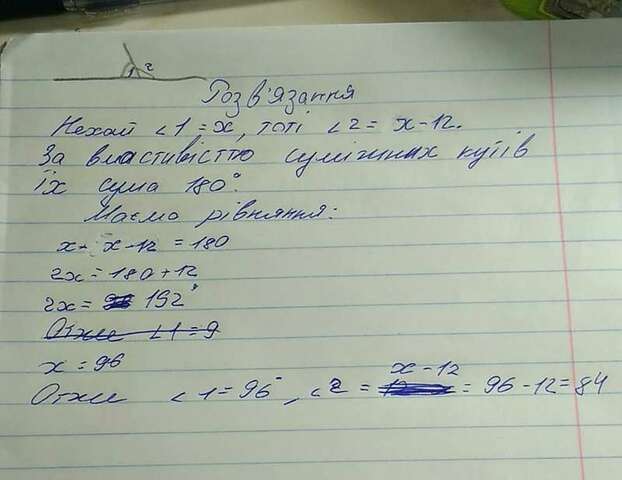 1 2
Розв'язання
Нехай ∠1 = x, тоті ∠2 = x - 12.
За властивістю суміжних кутів
їх сума 180°.
Маємо рівняння:
x + x - 12 = 180
2x = 180 + 12
2x = 192°
Отже ∠1 = 9
x = 96
x - 12
Отже ∠1 = 96°, ∠2 = = 96 - 12 = 84